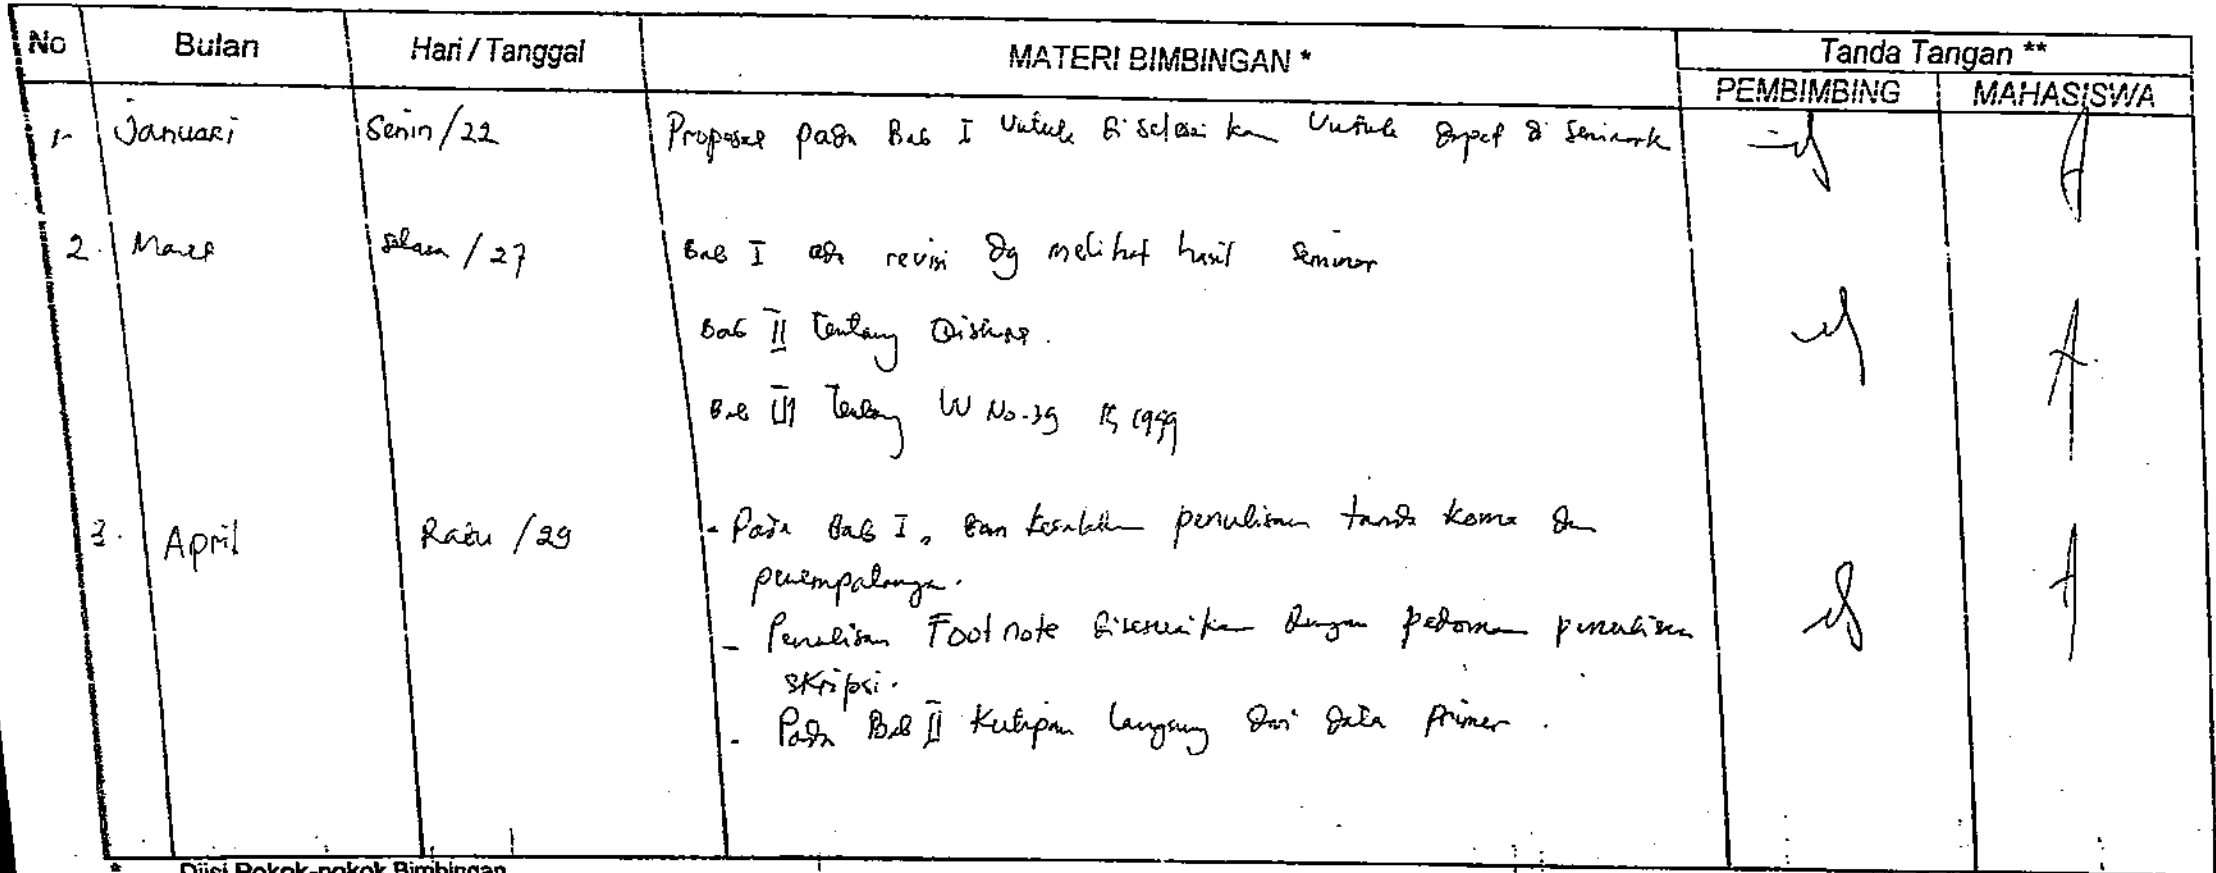 No Bulan Hari / Tanggal MATERI BIMBINGAN * Tanda Tangan **
PEMBIMBING MAHASISWA
1. Januari Senin / 22 Proposal pada Bab I Untuk diselesaikan Untuk dapat di
2. Maret Selasa / 27 Bab I ada revisi dg melihat hasil Seminar
Bab II tentang
Bab III tentang UU No. 39 1999
3. April Rabu / 29 - Pada Bab I, kesalahan penulisan tanda koma dan
penempatannya.
- Penulisan Footnote disesuaikan dengan pedoman penulisan
skripsi.
- Pada Bab II Kutipan langsung dari data primer.
* Diisi Pokok-pokok Bimbingan